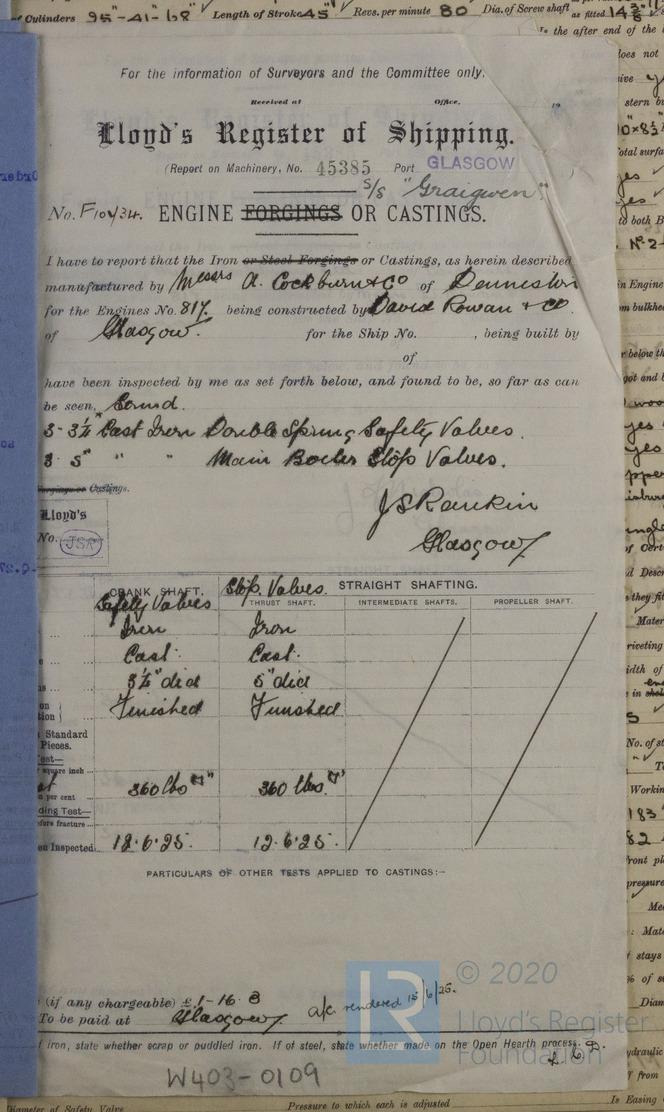 of Cylinders 25"-41"-68" Length of Stroke 45" Revs. per minute 80 Dia. of Screw shaft as fitted 14 3/8"
Is the after end of the
For the information of Surveyors and the Committee only.
Received at Office, 19
Lloyd's Register of Shipping.
(Report on Machinery, No. 45385 Port GLASGOW
S/S "Graigwen"
No. F10434. ENGINE FORGINGS OR CASTINGS.
I have to report that the Iron or Steel Forgings or Castings, as herein described
manufactured by Messrs A. Cockburn & Co of Denniston
for the Engines No. 817. being constructed by David Rowan & Co
of Glasgow. for the Ship No. , being built by
of
have been inspected by me as set forth below, and found to be, so far as can
be seen, Sound.
3 - 3¼" Cast Iron Double Spring Safety Valves.
3 5" " " Main Boiler Stop Valves.
Forgings or Castings.
Lloyd's
No. JSR
J S Rankin
Glasgow
CRANK SHAFT. Stop. Valves. STRAIGHT SHAFTING.
Safety Valves THRUST SHAFT. INTERMEDIATE SHAFTS. PROPELLER SHAFT.
Iron Iron
Cast. Cast.
3¼" dia 5" dia
Finished Finished
Standard
Pieces.
square inch
360 lbs □" 360 lbs. □"
per cent
ding Test—
fore fracture
Inspected. 12.6.25. 12.6.25.
PARTICULARS OF OTHER TESTS APPLIED TO CASTINGS:-
(if any chargeable) £ 1-16. 8 a/c rendered 15/6/25.
To be paid at Glasgow
f iron, state whether scrap or puddled iron. If of steel, state whether made on the Open Hearth process.
W403-0109
© 2020
Lloyd's Register
Foundation
Diameter of Safety Valve Pressure to which each is adjusted Is Easing